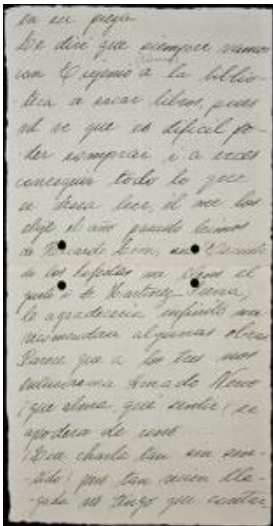 en su
Le diré que siempre vamos
con Eugenio a la biblio-
teca a sacar libros, pues
ud ve que es difícil po-
der comprar i a veces
conseguir todo lo que
se desea leer, él me los
elije el año pasado leímos
de Ricardo León,
de los
gusto a de Martínez Sierra,
le agradecería infinito me
recomendara algunas obras
Parece que a los tres nos
entusiasma Amado Nervo
¡que alma, qué sentir! se
apodera de uno.
¡Que charla tan sin sen-
tido! pero tan recien lle-
gada no tengo que contar